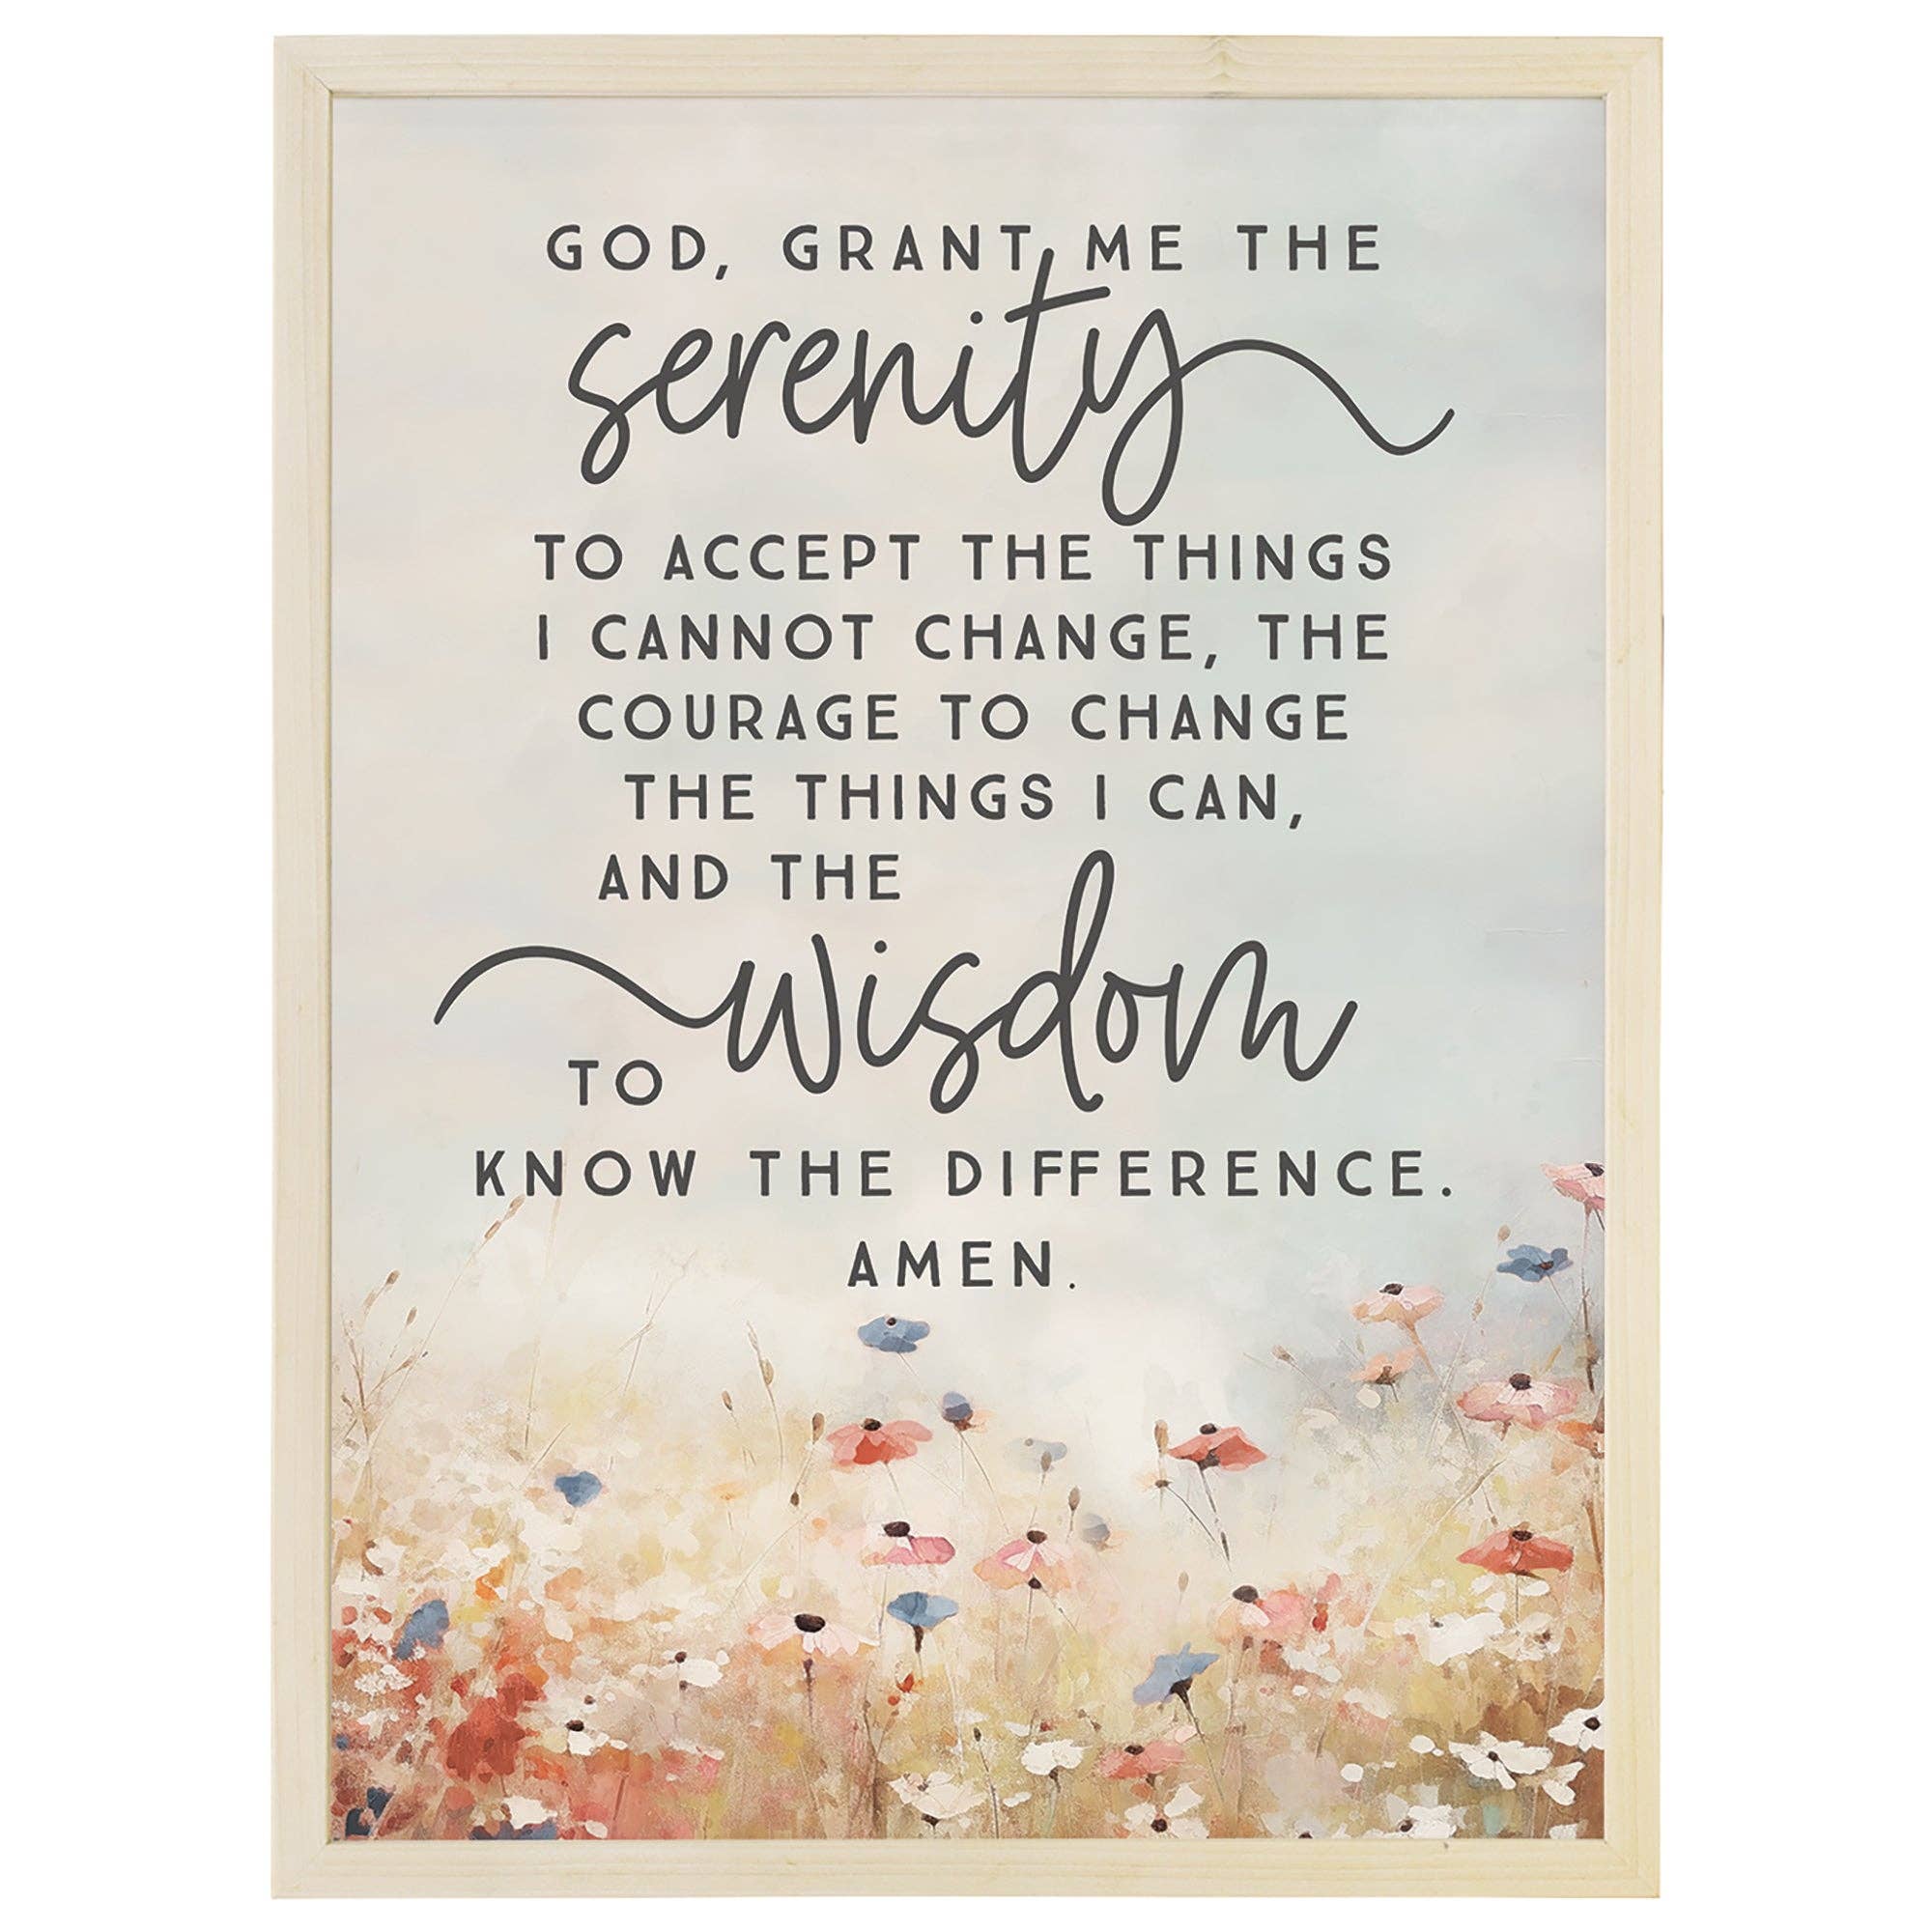 GOD, GRANT ME THE
serenity
TO ACCEPT THE THINGS
I CANNOT CHANGE, THE
COURAGE TO CHANGE
THE THINGS I CAN,
AND THE
wisdom
TO
KNOW THE DIFFERENCE.
AMEN.